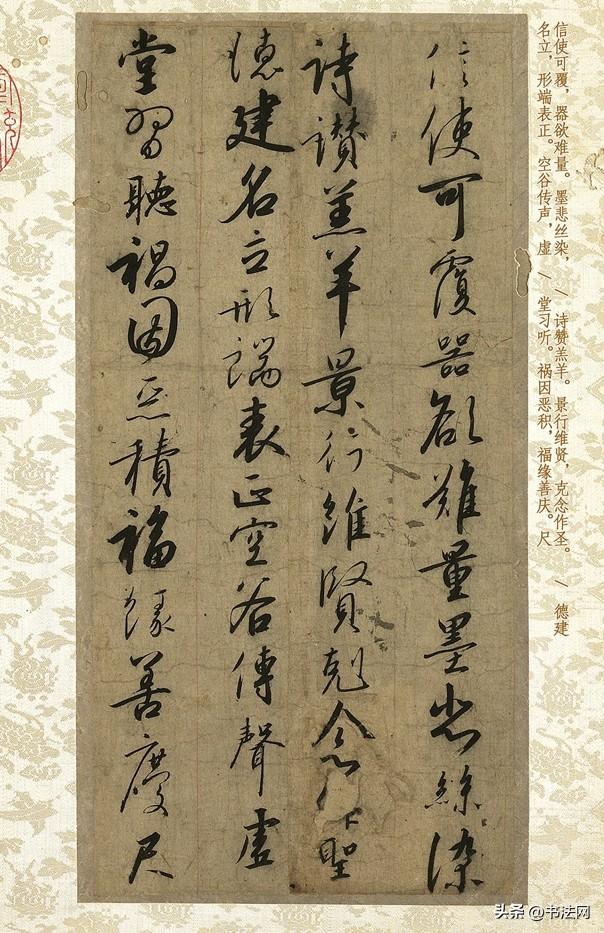 信使可覆，器欲难量。墨悲丝染， / 诗赞羔羊。景行维贤，克念作圣。 / 德建
名立，形端表正。空谷传声，虚 / 堂习听。祸因恶积，福缘善庆。尺
信使可覆器欲難量墨悲絲染
詩讃羔羊景行維賢剋念作聖
德建名立形端表正空谷傳聲虛
堂習聽禍因惡積福緣善慶尺
头条 @书法网